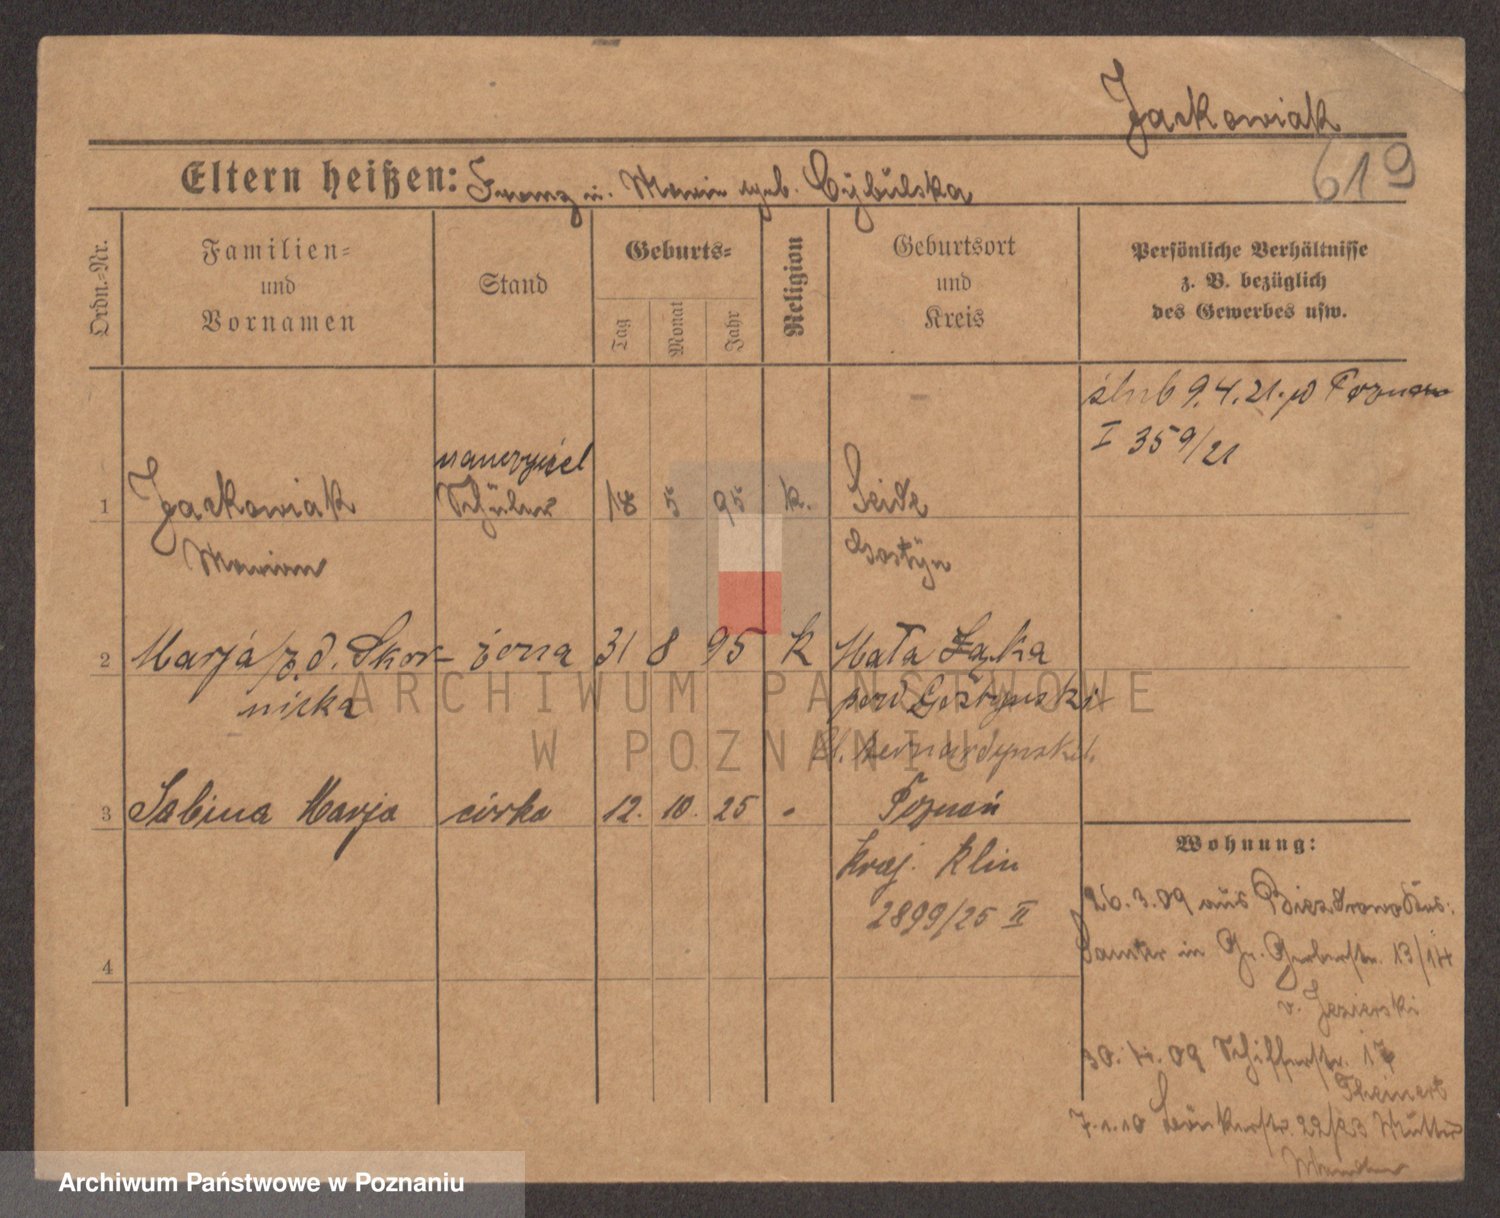 Jackowiak
619
Eltern heißen: Franz u. Marie geb. Cybulska
Ordn.-Nr.
Familien-
und
Vornamen
Stand
Geburts-
Tag
Monat
Jahr
Religion
Geburtsort
und
Kreis
Persönliche Verhältnisse
z. B. bezüglich
des Gewerbes usw.
ślub 9.4.21. w Poznan
I 359/21
nauczyciel
1 Jackowiak Schüler 18 5 95 k.
Marian Gostyn
2 Marja z d. Skor- żona 31 8 95 k Mała Łąka
nicka pow Gostynski
3 Sabina Marja córka 12. 10. 25 Poznań
2899/25 II
4
Wohnung:
26.3.09 aus Biezdrowo
Samter in Gr. Gerberstr. 13/14
v. Jezierski
30.4.09 Schifferstr. 17
Theinert
7.1.10 22/23 Mutter
ARCHIWUM PAŃSTWOWE
W POZNANIU
Archiwum Państwowe w Poznaniu